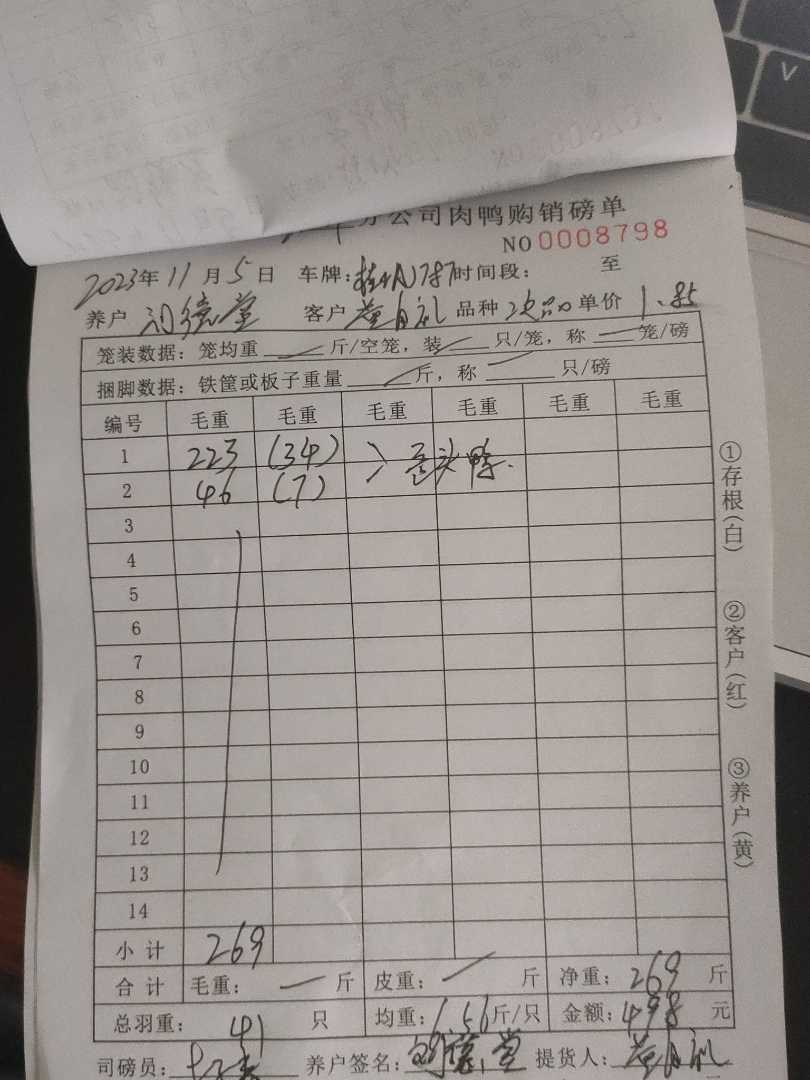 分公司肉鸭购销磅单
NO 0008798
2023年 11 月 5 日 车牌: 787 时间段: 至
养户 德堂 客户 品种 次品 单价 1.85
笼装数据: 笼均重 斤/空笼, 装 只/笼, 称 笼/磅
捆脚数据: 铁筐或板子重量 斤, 称 只/磅
编号 毛重 毛重 毛重 毛重 毛重 毛重
1 223 (34) 头鸭.
2 46 (7)
3
4
5
6
7
8
9
10
11
12
13
14
小计 269
合计 毛重: 斤 皮重: 斤 净重: 269 斤
总羽重: 41 只 均重: 6.56 斤/只 金额: 498 元
司磅员: 养户签名: 德堂 提货人:
①存根(白)
②客户(红)
③养户(黄)